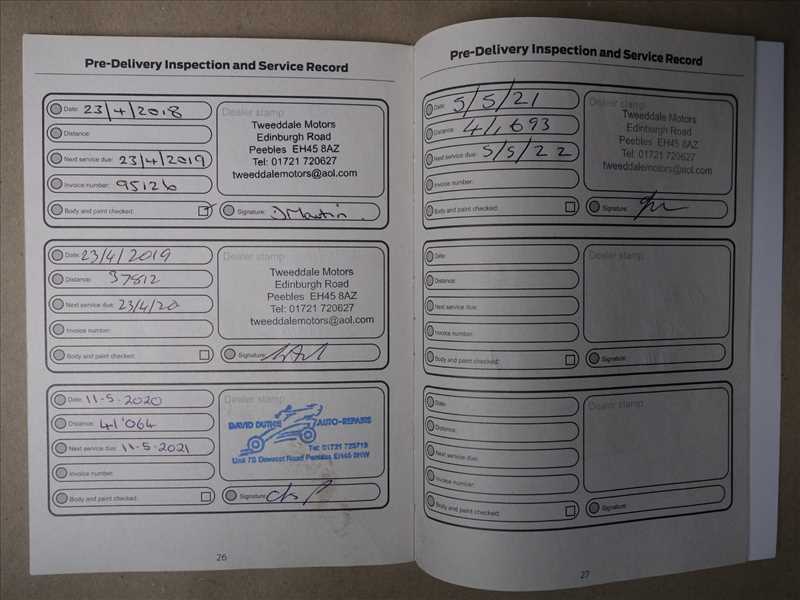 Pre-Delivery Inspection and Service Record
Date: 23/4/2018
Distance:
Next service due: 23/4/2019
Invoice number: 95126
Body and paint checked:
Dealer stamp
Tweeddale Motors
Edinburgh Road
Peebles EH45 8AZ
Tel: 01721 720627
tweeddalemotors@aol.com
Signature: DMartin.
Date: 23/4/2019
Distance: 37812
Next service due: 23/4/20
Invoice number:
Body and paint checked:
Dealer stamp
Tweeddale Motors
Edinburgh Road
Peebles EH45 8AZ
Tel: 01721 720627
tweeddalemotors@aol.com
Signature:
Date: 11-5-2020
Distance: 41'064
Next service due: 11-5-2021
Invoice number:
Body and paint checked:
Dealer stamp
DAVID DUTHIE AUTO-REPAIRS
Tel: 01721 723713
Road Peebles EH45 8HW
Signature:
26
Pre-Delivery Inspection and Service Record
Date: 5/5/21
Distance: 41,693
Next service due: 5/5/22
Invoice number:
Body and paint checked:
Dealer stamp
Tweeddale Motors
Edinburgh Road
Peebles EH45 8AZ
Tel: 01721 720627
tweeddalemotors@aol.com
Signature:
Date:
Distance:
Next service due:
Invoice number:
Body and paint checked:
Dealer stamp
Signature:
Date:
Distance:
Next service due:
Invoice number:
Body and paint checked:
Dealer stamp
Signature:
27